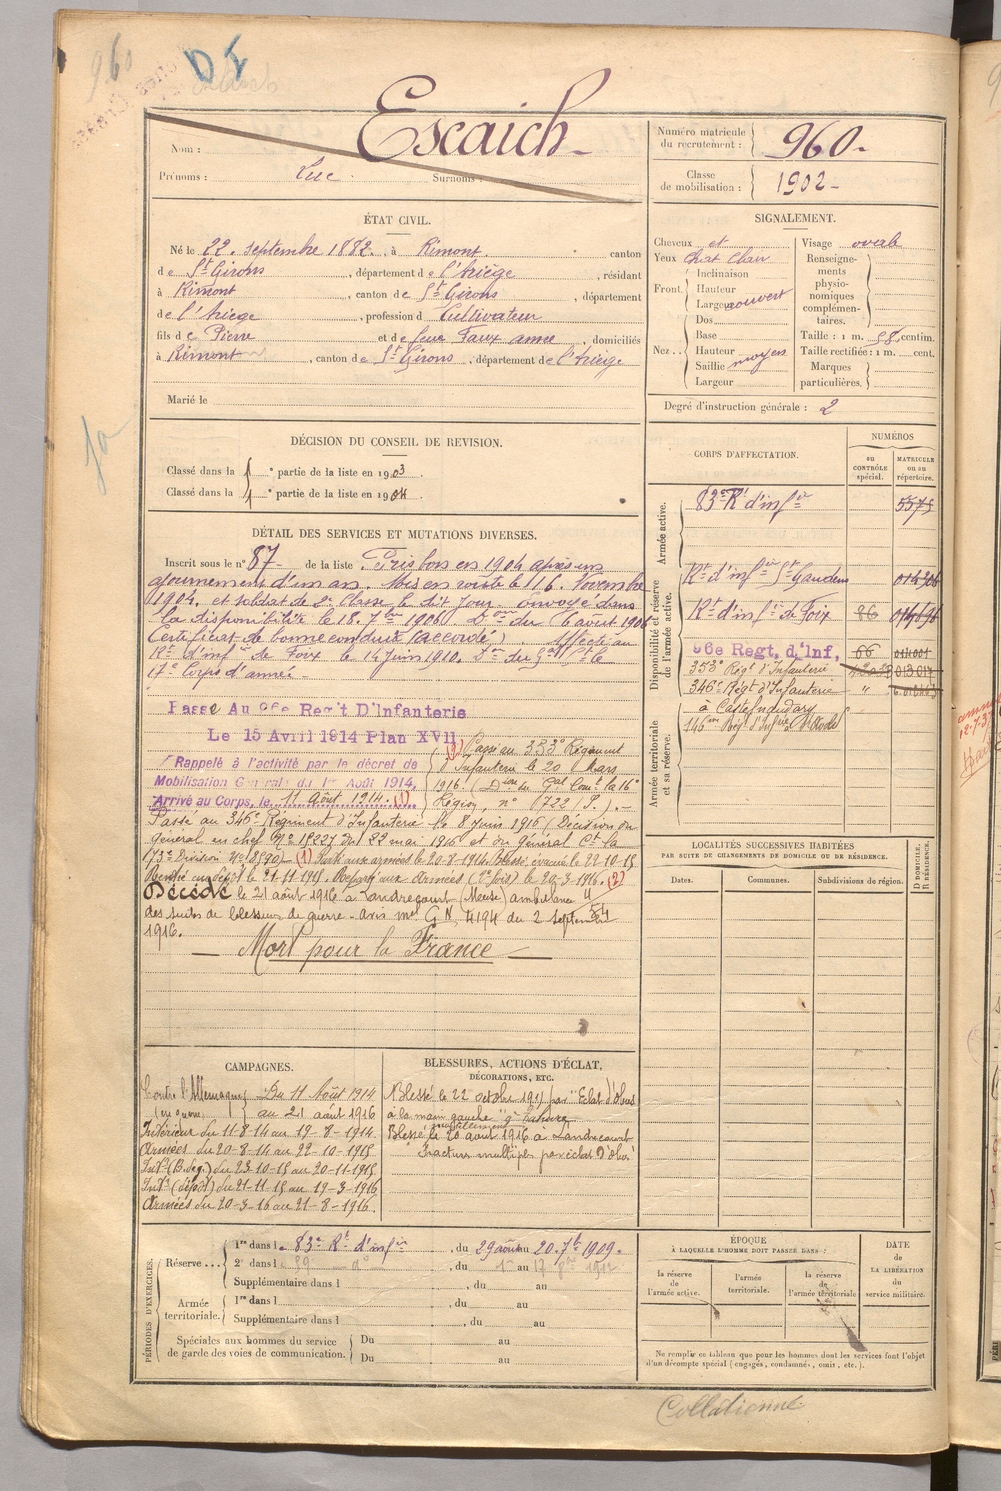 960
D F
Nom : Escaich
Prénoms : Luc Surnoms :
Numéro matricule du recrutement : 960
Classe de mobilisation : 1902
ÉTAT CIVIL.
Né le 22 septembre 1882, à Rimont, canton
de St Girons, département de l'Ariège, résidant
à Rimont, canton de St Girons, département
de l'Ariège, profession d Cultivateur
fils de Pierre et de feue Faux anne, domiciliés
à Rimont, canton de St Girons, département de l'Ariège
Marié le
SIGNALEMENT.
Cheveux et
Yeux chat clair
Front. Inclinaison
Hauteur
Largeur couvert
Nez.. Dos
Base
Hauteur
Saillie moyen
Largeur
Visage ovale
Renseignements physionomiques complémentaires.
Taille : 1 m. 58 centim.
Taille rectifiée : 1 m. cent.
Marques particulières.
Degré d'instruction générale : 2
DÉCISION DU CONSEIL DE REVISION.
Classé dans la e partie de la liste en 1903.
Classé dans la e partie de la liste en 1904.
DÉTAIL DES SERVICES ET MUTATIONS DIVERSES.
Inscrit sous le no 87 de la liste Pris bon en 1904 après un
ajournement d'un an. Mis en route le 16 Novembre
1904, et soldat de 2e classe le dit jour. Envoyé dans
la disponibilité le 18. 7bre 1906. Don du 6 août 1906
Certificat de bonne conduite (accordé). Affecté au
Rt d'infie de Foix le 14 Juin 1910. Don du Gal Ct le
17e Corps d'armée.
Passé Au 96e Reg't D'Infanterie
Le 15 Avril 1914 Plan XVII
Rappelé à l'activité par le décret de
Mobilisation Générale du 1er Août 1914.
Arrivé au Corps, le 11 Août 1914. (1)
(2) Passé au 353e Régiment
d'Infanterie le 20 Mars
1916. (Don du Gal Comt la 16e
Région, no 1722/P.)
Passé au 346e Régiment d'Infanterie le 8 Juin 1916 (Décision du
général en chef No 18227 du 22 mai 1916 et du général Ct la
73e Division No 8590) (1) Parti aux armées le 20-8-1914. Blessé, évacué le 22-10-15
Rentré au dépôt le 21-11-1915. Reparti aux Armées (2e fois) le 20-3-1916. (2)
Décédé le 21 août 1916 à Landrecourt (Meuse) ambulance 4/54
des suites de blessures de guerre. Avis mel GN 4194 du 2 Septembre
1916.
Mort pour la France
CORPS D'AFFECTATION.
NUMÉROS
au CONTRÔLE spécial.
MATRICULE ou au répertoire.
Armée active.
83e Rt d'infie 5575
Disponibilité et réserve de l'armée active.
Rt d'infie St Gaudens
Rt d'infie de Foix 86
96e Regt. d'Inf. 66
353e Régt d'Infanterie
346e Régt d'Infanterie "
Armée territoriale et sa réserve.
à Castelnaudary
LOCALITÉS SUCCESSIVES HABITÉES
PAR SUITE DE CHANGEMENTS DE DOMICILE OU DE RÉSIDENCE.
Dates. Communes. Subdivisions de région. D DOMICILE. R RÉSIDENCE.
CAMPAGNES.
Contre l'Allemagne Du 11 Août 1914
au 21 août 1916
Intérieur du 11-8-14 au 19-8-1914.
Armées du 20-8-14 au 22-10-1915
Intr (B. de g.) du 23-10-15 au 20-11-1915
Intr (dépôt) du 21-11-15 au 19-3-1916
Armées du 20-3-16 au 21-8-1916.
BLESSURES, ACTIONS D'ÉCLAT,
DÉCORATIONS, ETC.
Blessé le 22 octobre 1915 par "Eclat d'Obus
à la main gauche"
Blessé mortellement le 20 août 1916 à Landrecourt
Fracture multiples par éclat D'obus
PÉRIODES D'EXERCICES.
Réserve... 1re dans le 83e Rt d'infie, du 29 août au 20. 7bre 1909.
2e dans l , du 1er au 17
Supplémentaire dans l , du au
Armée territoriale. 1re dans l , du au
Supplémentaire dans l , du au
Spéciales aux hommes du service de garde des voies de communication. Du au
Du au
ÉPOQUE
À LAQUELLE L'HOMME DOIT PASSER DANS :
la réserve de l'armée active.
l'armée territoriale.
la réserve de l'armée territoriale
DATE de LA LIBÉRATION du service militaire.
Ne remplir ce tableau que pour les hommes dont les services font l'objet
d'un décompte spécial (engagés, condamnés, omis, etc.).
Collationné